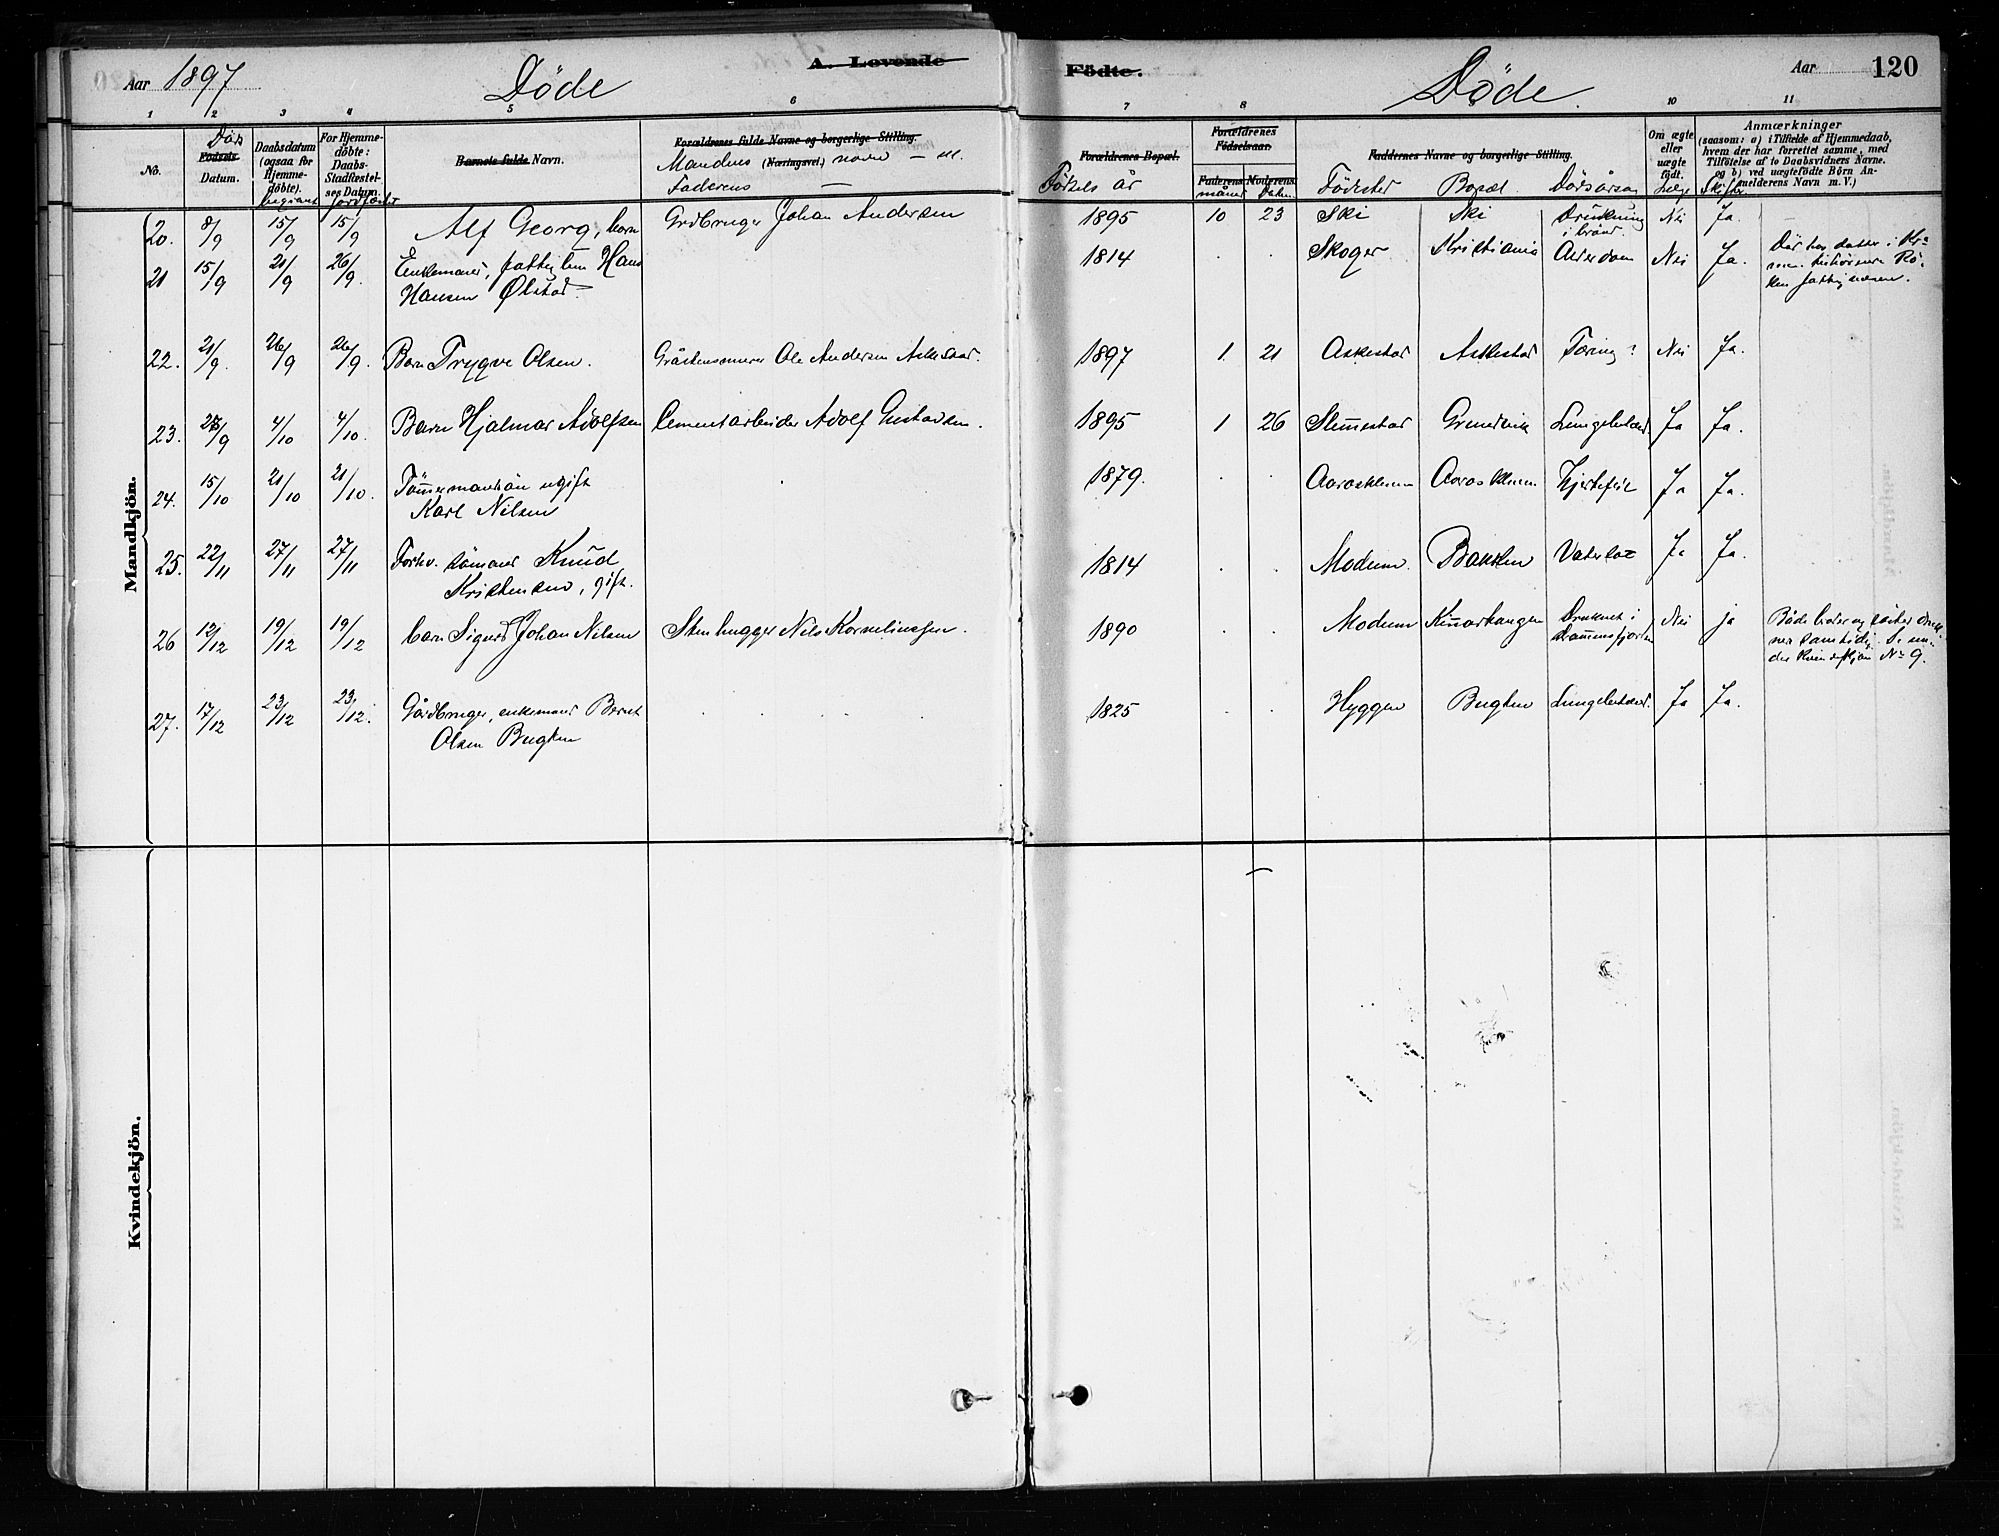 Aar 1897
Döde
A. Levende
Födte.
Döde.
Aar
120
1 2 3 4 5 6 7 8 10 11
No.
Döds
Födsels-
Datum.
Daabsdatum
(ogsaa for
Hjemme-
döbte).
For Hjemme-
döbte:
Daabs-
Stadfæstel-
ses Datum.
Jordfæstet
Barnets fulde Navn.
Forældrenes fulde Navne og borgerlige Stilling.
Mandens (Næringsvei.) navn
Faderens —
Forældrenes Bopæl.
Födsels år
Forældrenes
Födselsaar.
Faderens
måned
Moderens
Datum
Faddernes Navne og borgerlige Stilling.
Födested Bopæl Dødsårsag
Om ægte
eller
uægte
födt.
Anmærkninger
(saasom: a) i Tilfælde af Hjemmedaab,
hvem der har forrettet samme, med
Tilföielse af to Daabsvidners Navne.
og b) ved uægtefödte Börn An-
melderens Navn m. V.)
Mandkjön.
20. 8/9 15/9 15/9 Alf Georg, barn Grdbruger Johan Andersen 1895 10 23 Ski Ski Drukning i brönd. Nei Ja.
21 15/9 21/9 26/9. Enkemand, fattiglem Hans Hansen Ølstad. 1814 Skoger Kristiania Alderdom Nei Ja.
22. 21/9. 26/9 26/9. Barn Trygve Olsen. Gråstensmurer Ole Andersen Askestad. 1897 1 21 Askestad Askestad Tæring? Nei Ja.
23. 27/9 4/10 4/10. Barn Hjalmar Adolfsen Cementarbeider Adolf Gustavsen. 1895 1 26 Slemmestad Grundvik Lungebetænd. Ja Ja.
24. 15/10 21/10 21/10. Tömmermand ugift
Karl Nilsen 1879. Hjertefeil Ja Ja.
25. 22/11 27/11 27/11 Forhv. sömand Knud
Kristensen, gift. 1814 Modum. Bakken Vatersot Ja Ja.
26 12/12 19/12 19/12 barn Sigurd Johan Nilsen Stenhugger Nils Korneliussen. 1890 Modum Druknet i
Drammensfjorden Nei ja Både broder og söster druk-
net samtidig. Se un-
der kvindekjön No 9.
27. 17/12 23/12 23/12. Gårdbruger, enkemand Bernt
Olsen Bugten 1825 Hyggen Bugten Lungebetænd. Ja Ja.
Kvindekjön.